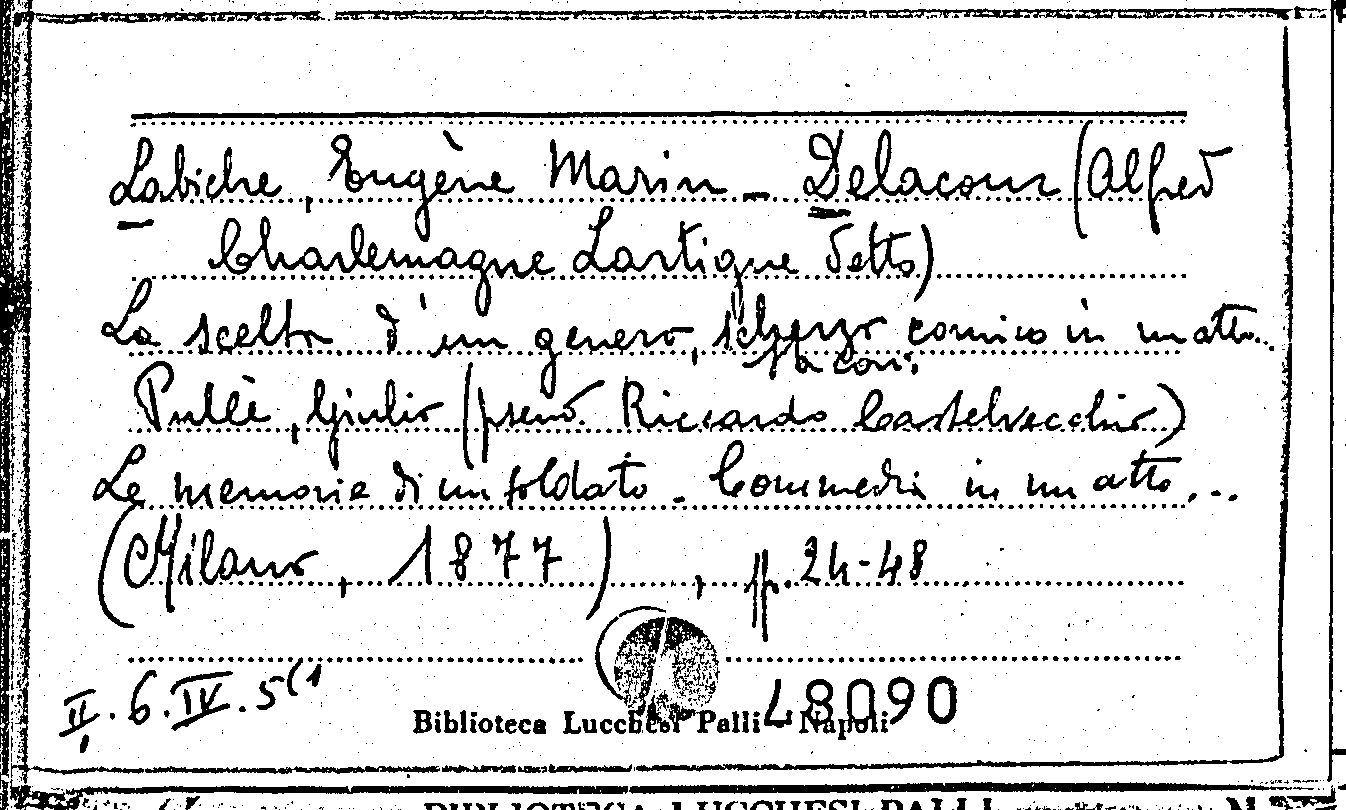 Labiche, Eugène Marin - Delacour (Alfred
Charlemagne Lartigue detto)
La scelta d'un genero, scherzo comico in un atto...
Sta con:
Pullè, Giulio (pseud. Riccardo Castelvecchio)
Le memorie di un soldato - Commedia in un atto...
(Milano, 1877), pp. 24-48
II. 6. IV. 5(1
48090
Biblioteca Lucchesi Palli - Napoli
BIBLIOTECA LUCCHESI PALLI